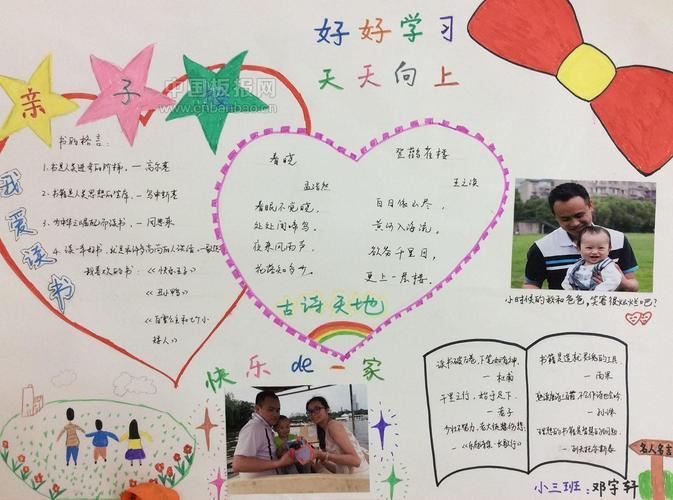 好好学习
天天向上
中国板报网
www.cnbanbao.cn
亲子
我爱读书
书的格言：
1.书是人类进步的阶梯。—高尔基
2.书籍是人类思想的宝库。—乌申斯基
3.为中华之崛起而读书。—周恩来
我喜欢的书：《快乐王子》
《丑小鸭》
《白雪公主和七个小
矮人》
春晓
孟浩然
春眠不觉晓，
处处闻啼鸟。
夜来风雨声，
花落知多少。
登鹳雀楼
王之涣
白日依山尽，
黄河入海流。
欲穷千里目，
更上一层楼。
古诗天地
小时候的我和爸爸，笑容很灿烂吧？
快乐de一家
读书破万卷，下笔如有神。
—杜甫
千里之行，始于足下。
—老子
少壮不努力，老大徒伤悲。
—《乐府诗集·长歌行》
书籍是造就灵魂的工具。
—雨果
熟读唐诗三百首，不会作诗也会吟。
—孙洙
名人名言
小三班：邓宇轩